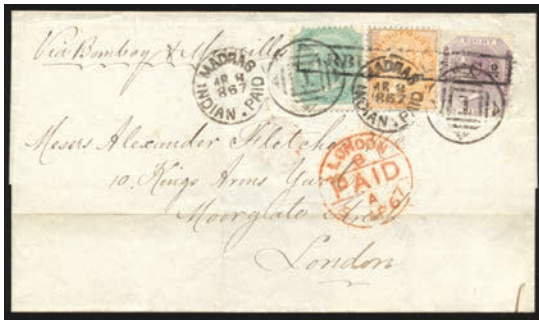 Via Bombay & Marseilles
MADRAS
INDIAN PAID
867
MADRAS
INDIAN PAID
867
1
1
EIGHT
Messrs Alexander Fletcher
10, Kings Arms Yard
Moorgate Street
London
LONDON
PAID
67